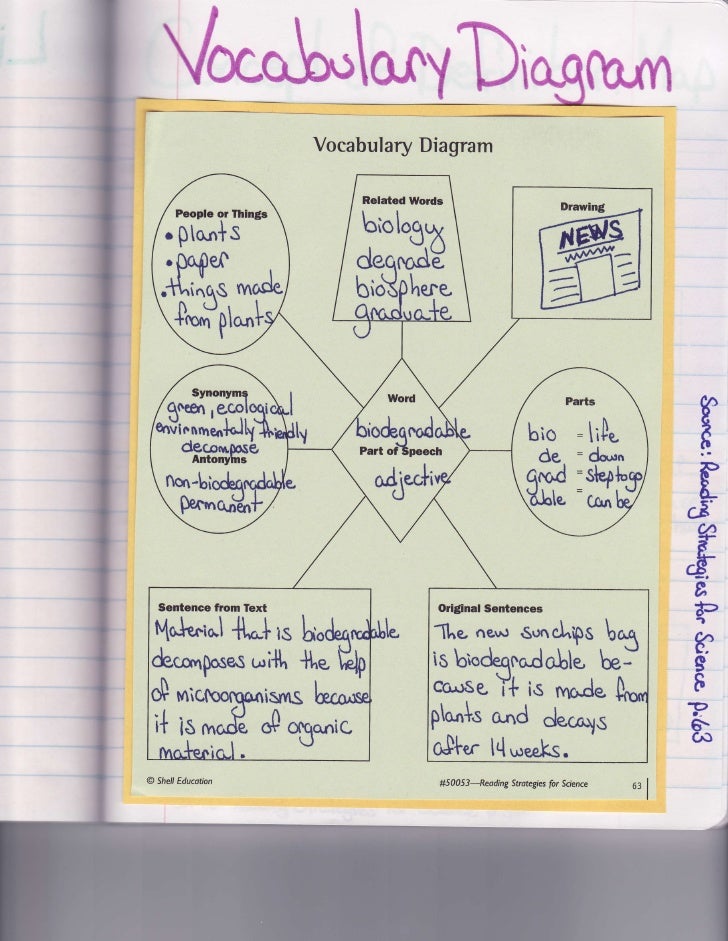 Vocabulary Diagram
Vocabulary Diagram
People or Things
• plants
• paper
• things made
from plants
Related Words
biology
degrade
biosphere
graduate
Drawing
NEWS
Synonyms
green, ecological
envirnmentally friendly
decompose
Antonyms
non-biodegradable
permanent
Word
biodegradable
Part of Speech
adjective
Parts
bio = life
de = down
grad = step to go
able = can be
Sentence from Text
Material that is biodegradable
decomposes with the help
of microorganisms because
it is made of organic
material.
Original Sentences
The new sunchips bag
is biodegradable be-
cause it is made from
plants and decays
after 14 weeks.
© Shell Education
#50053—Reading Strategies for Science 63
Source: Reading Strategies for Science p.63